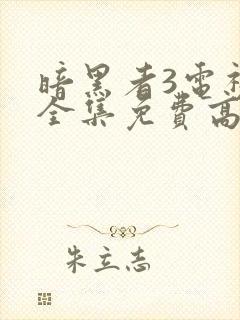 暗黑者3电视
全集免费高
朱立志